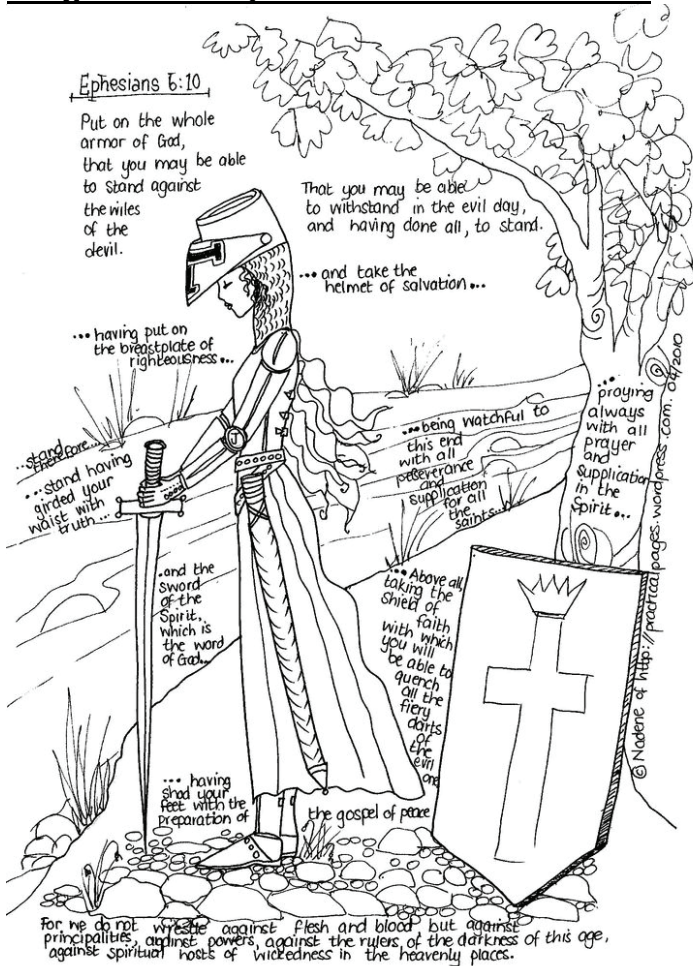 Ephesians 6:10
Put on the whole
armor of God,
that you may be able
to stand against
the wiles
of the
devil.
That you may be able
to withstand in the evil day,
and having done all, to stand.
... and take the
helmet of salvation...
... having put on
the breastplate of
righteousness...
...stand
therefore...
... stand having
girded your
waist with
truth...
...being watchful to
this end
with all
peseverance
and
supplication
for all
the
saints...
...praying
always
with all
prayer
and
supplication
in the
Spirit...
.and the
sword
of the
Spirit,
which is
the word
of God...
... Above all,
taking the
shield of
faith
with which
you will
be able to
quench
all the
fiery
darts
of
the
evil
one
... having
shod your
feet with the
preparation of
the gospel of peace
© Nadene of http://practicalpages.wordpress.com. 04/2010
J
For we do not wrestle against flesh and blood but against
principalities, against powers, against the rulers, of the darkness of this age,
against spiritual hosts of wickedness in the heavenly places.